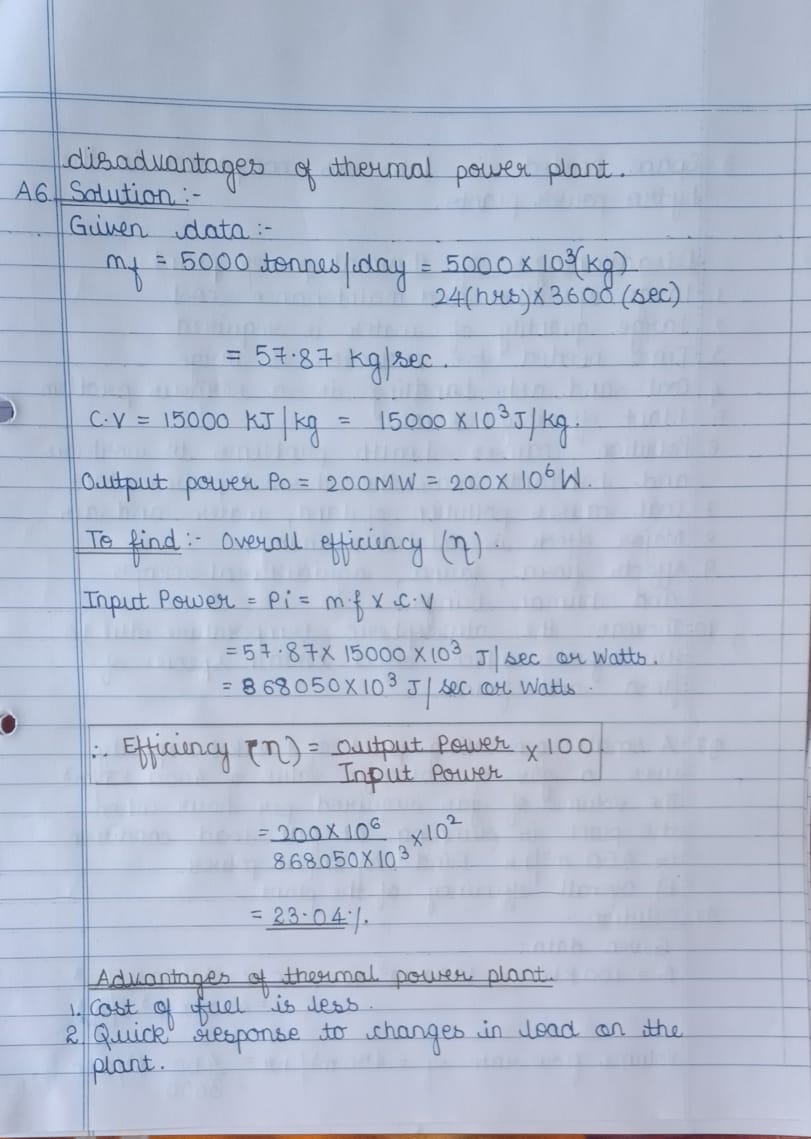 disadvantages of thermal power plant.
A6. Solution :-
Given data :-
mf = 5000 tonnes/day = 5000 × 10³(kg)
24(hrs)×3600 (sec)
= 57.87 kg/sec.
C.V = 15000 KJ/kg = 15000 × 10³ J/kg.
Output power Po = 200MW = 200× 10⁶ W.
To find :- Overall efficiency (η).
Input Power = Pi = m.f × C.V
= 57.87 × 15000 × 10³ J/sec or Watts.
= 868050×10³ J/sec or Watts.
∴ Efficiency (η) = Output Power × 100
Input Power
= 200×10⁶ × 10²
868050×10³
= 23.04 %.
Advantages of thermal power plant.
1. Cost of fuel is less.
2. Quick response to changes in load on the
plant.